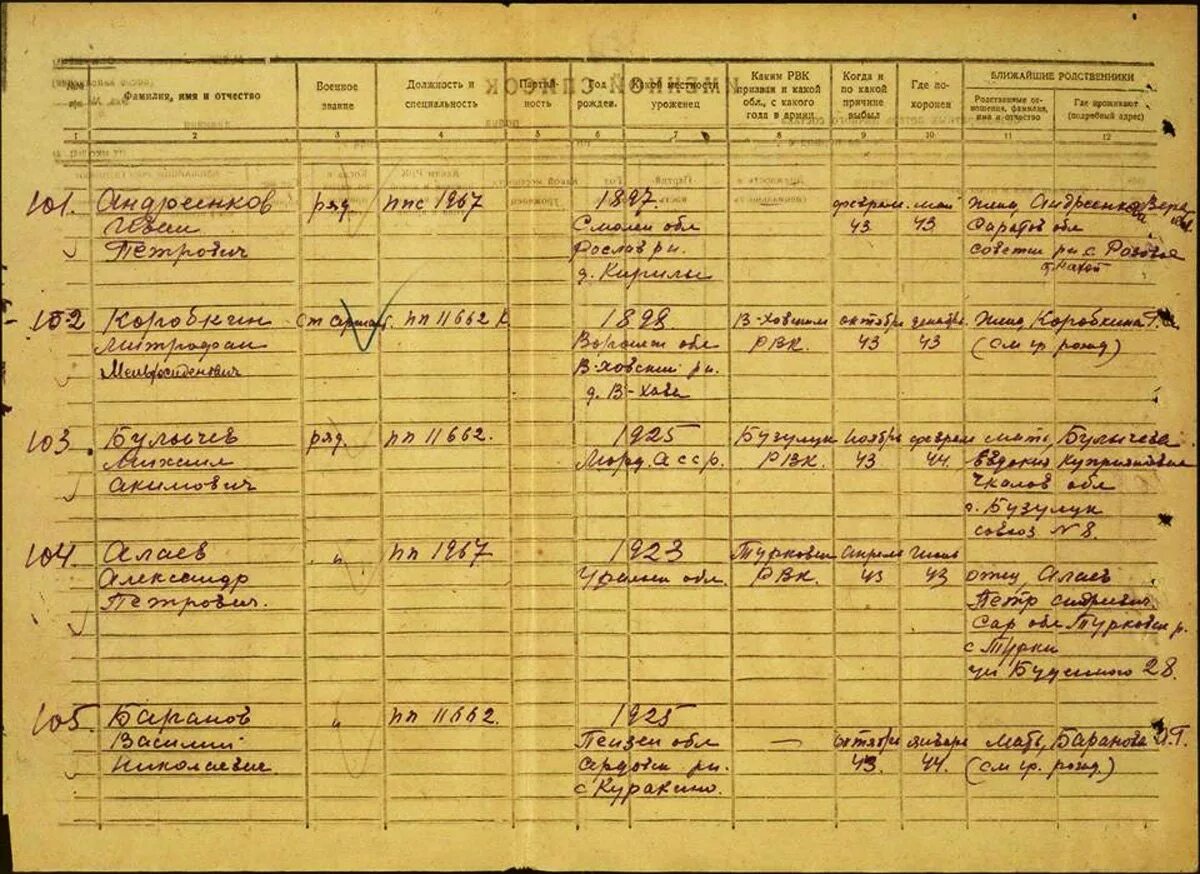 №№ п/п
Фамилия, имя и отчество
Военное звание
Должность и специальность
Партийность
Год рожден.
Какой местности уроженец
Каким РВК призван и какой обл., с какого года в армии
Когда и по какой причине выбыл
Где похоронен
БЛИЖАЙШИЕ РОДСТВЕННИКИ
Родственные отношения, фамилия, имя и отчество
Где проживают (подробный адрес)
1 2 3 4 5 6 7 8 9 10 11 12
101. Андреенков ряд. ппс 1967 1897. феврал. май жена, Андреенкова Вера
Иван Смолен обл 43 43 Саратов обл
Петрович Рослав рн. советск рн с. Розовое
д. Кирилы
102 Коробкин ст сержант. пп 11662 К 1898. В-Ховским октябрь декабрь жена, Коробкина
Митрофан Воронеж обл РВК. 43 43 (см гр. рожд)
В-Ховский рн.
д. В-Хава
103 Булычев ряд. пп 11662. 1925 Бузулук ноябрь феврал мать, Булычева
Михаил Морд. АССР. РВК. 43 44. Евдокия Куприяновна
Акимович Чкалов обл
г. Бузулук
совхоз № 8.
104. Алаев " пп 1967 1923 Турковск апрель июнь
Александр обл. РВК. 43 43 отец, Алаев
Петрович. Петр
Сар обл Турковск р.
с Турки
ул Буденного 28.
105. Баранов " пп 11662. 1925
Василий Пензен обл — октябрь январь мать, Баранова
Николаевич рн. 43. 44. (см гр. рожд.)
с Куракино.